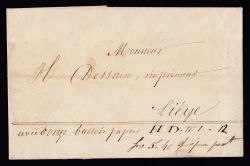 Monsieur
H. Dessain, imprimeur
Liége
avec douze ballots papier H D. N° 1 - 12